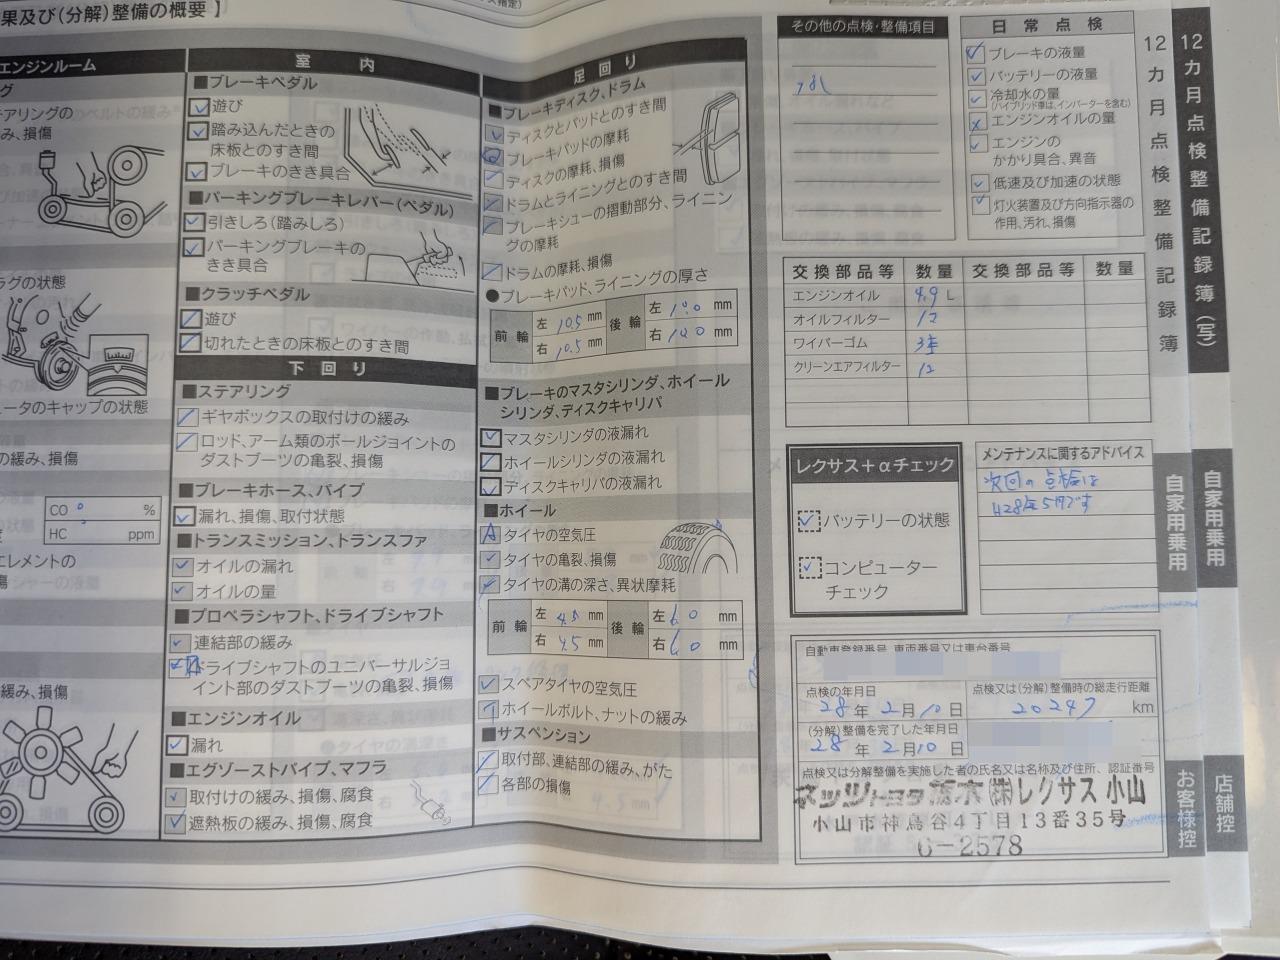 果及び(分解)整備の概要】
エンジンルーム
み、損傷
ラグの状態
ータのキャップの状態
の緩み、損傷
CO %
HC ppm
エレメントの
み、損傷
室 内
■ブレーキペダル
遊び
踏み込んだときの
床板とのすき間
ブレーキのきき具合
■パーキングブレーキレバー(ペダル)
引きしろ(踏みしろ)
パーキングブレーキの
きき具合
■クラッチペダル
遊び
切れたときの床板とのすき間
下 回 り
■ステアリング
ギヤボックスの取付けの緩み
ロッド、アーム類のボールジョイントの
ダストブーツの亀裂、損傷
■ブレーキホース、パイプ
漏れ、損傷、取付状態
■トランスミッション、トランスファ
オイルの漏れ
オイルの量
■プロペラシャフト、ドライブシャフト
連結部の緩み
ドライブシャフトのユニバーサルジョ
イント部のダストブーツの亀裂、損傷
■エンジンオイル
漏れ
■エグゾーストパイプ、マフラ
取付けの緩み、損傷、腐食
遮熱板の緩み、損傷、腐食
足 回 り
■ブレーキディスク、ドラム
ディスクとパッドとのすき間
ブレーキパッドの摩耗
ディスクの摩耗、損傷
ドラムとライニングとのすき間
ブレーキシューの摺動部分、ライニン
グの摩耗
ドラムの摩耗、損傷
●ブレーキパッド、ライニングの厚さ
前輪 左 10.5 mm 後輪 左 mm
右 10.5 mm 右 mm
■ブレーキのマスタシリンダ、ホイール
シリンダ、ディスクキャリパ
マスタシリンダの液漏れ
ホイールシリンダの液漏れ
ディスクキャリパの液漏れ
■ホイール
A タイヤの空気圧
タイヤの亀裂、損傷
タイヤの溝の深さ、異状摩耗
前輪 左 4.5 mm 後輪 左 6.0 mm
右 4.5 mm 右 6.0 mm
スペアタイヤの空気圧
T ホイールボルト、ナットの緩み
■サスペンション
取付部、連結部の緩み、がた
各部の損傷
その他の点検・整備項目
日 常 点 検
ブレーキの液量
バッテリーの液量
冷却水の量
(ハイブリッド車は、インバーターを含む)
エンジンオイルの量
エンジンの
かかり具合、異音
低速及び加速の状態
灯火装置及び方向指示器の
作用、汚れ、損傷
交換部品等 数量 交換部品等 数量
エンジンオイル 4.9 L
オイルフィルター 1コ
ワイパーゴム
クリーンエアフィルター 1コ
レクサス+αチェック
バッテリーの状態
コンピューター
チェック
メンテナンスに関するアドバイス
次回の点検は
H28年5月です
自動車登録番号、車両番号又は車台番号
点検の年月日
28 年 2 月 10 日
点検又は(分解)整備時の総走行距離
20247 km
(分解)整備を完了した年月日
28 年 2 月 10 日
点検又は分解整備を実施した者の氏名又は名称及び住所、認証番号
ネッツトヨタ栃木㈱レクサス小山
小山市神鳥谷4丁目13番35号
6-2578
12カ月点検整備記録簿
自家用乗用
お客様控
12カ月点検整備記録簿(写)
自家用乗用
店舗控